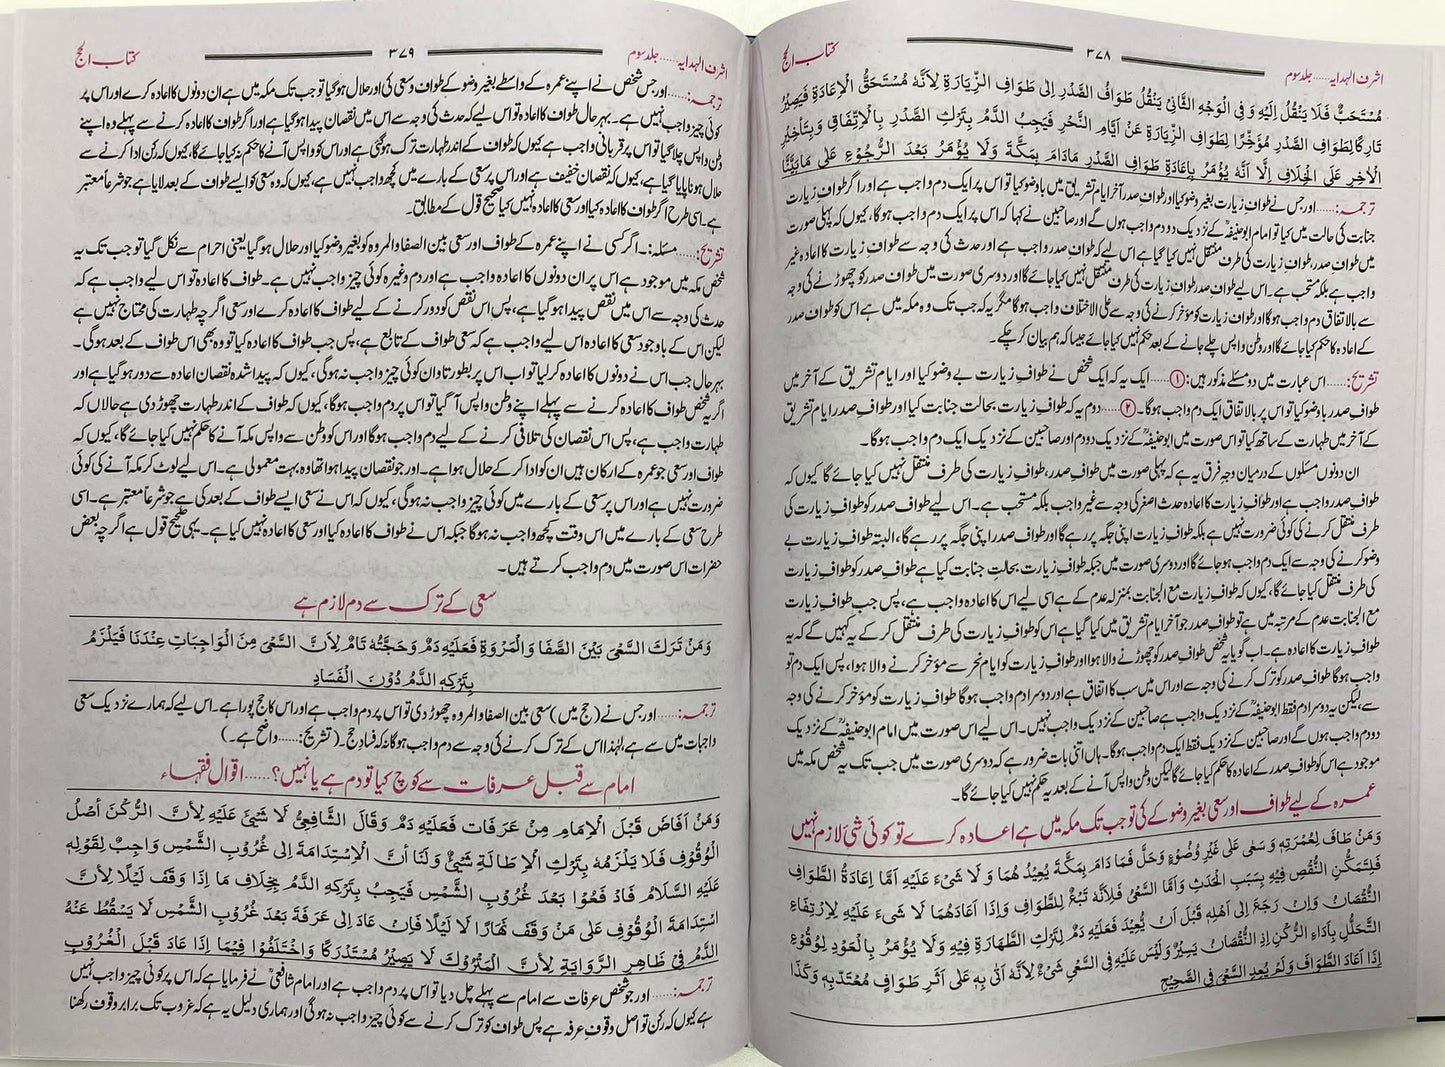 اشرف الہدایہ……جلد سوم
۳۷۸
کتاب الحج
مُسْتَحَبٌّ فَلَا يَنْقُلُ إِلَيْهِ وَ فِي الْوَجْهِ الثَّانِي يَنْقُلُ طَوَافُ الصَّدْرِ إِلَى طَوَافِ الزِّيَارَةِ لِأَنَّهُ مُسْتَحَقُّ الْإِعَادَةِ فَيَصِيْرُ
تَارِكًا لِطَوَافِ الصَّدْرِ مُؤَخِّرًا لِطَوَافِ الزِّيَارَةِ عَنْ أَيَّامِ النَّحْرِ فَيَجِبُ الدَّمُ بِتَرْكِ الصَّدْرِ بِالْإِتِّفَاقِ وَبِتَاخِيْرِ
الْآخِرِ عَلَى الْخِلَافِ إِلَّا أَنَّهُ يُؤْمَرُ بِإِعَادَةِ طَوَافِ الصَّدْرِ مَادَامَ بِمَكَّةَ وَلَا يُؤْمَرُ بَعْدَ الرُّجُوْعِ عَلَى مَا بَيَّنَّا
ترجمہ:……اور جس نے طواف زیارت بغیر وضو کیا اور طواف صدر آخر ایام تشریق میں باوضو کیا تو اس پر ایک دم واجب ہے اور اگر طواف زیارت
جنابت کی حالت میں کیا تو امام ابو حنیفہؒ کے نزدیک دو دم واجب ہوں گے اور صاحبین نے کہا کہ اس پر ایک دم واجب ہوگا، کیوں کہ پہلی صورت
میں طواف صدر، طواف زیارت کی طرف منتقل نہیں کیا گیا ہے اس لیے کہ طواف صدر واجب ہے اور حدث کی وجہ سے طواف زیارت کا اعادہ غیر
واجب ہے بلکہ مستحب ہے۔ اس لیے طواف صدر طواف زیارت کی طرف منتقل نہیں کیا جائے گا اور دوسری صورت میں طواف صدر کو چھوڑنے کی وجہ
سے بالاتفاق دم واجب ہوگا اور طواف زیارت کو مؤخر کرنے کی وجہ سے علی الاختلاف واجب ہوگا مگر یہ کہ جب تک وہ مکہ میں ہے اس کو طواف صدر
کے اعادہ کا حکم کیا جائے گا اور وطن واپس چلے جانے کے بعد حکم نہیں کیا جائے جیسا کہ ہم بیان کر چکے۔
تشریح:……اس عبارت میں دو مسئلے مذکور ہیں: ①……ایک یہ کہ ایک شخص نے طواف زیارت بے وضو کیا اور ایام تشریق کے آخر میں
طوافِ صدر باوضو کیا تو اس پر بالاتفاق ایک دم واجب ہوگا۔ ②……دوم یہ کہ طواف زیارت بحالت جنابت کیا اور طواف صدر ایام تشریق
کے آخر میں طہارت کے ساتھ کیا تو اس صورت میں ابو حنیفہؒ کے نزدیک دو دم اور صاحبین کے نزدیک ایک دم واجب ہوگا۔
ان دونوں مسئلوں کے درمیان وجہ فرق یہ ہے کہ پہلی صورت میں طواف صدر، طواف زیارت کی طرف منتقل نہیں کیا جائے گا کیوں کہ
طوافِ صدر واجب ہے اور طوافِ زیارت کا اعادہ حدث اصغر کی وجہ سے غیر واجب بلکہ مستحب ہے۔ اس لیے طواف صدر کو طواف زیارت کی
طرف منتقل کرنے کی کوئی ضرورت نہیں ہے بلکہ طوافِ زیارت اپنی جگہ پر رہے گا اور طواف صدر اپنی جگہ پر رہے گا، البتہ طوافِ زیارت بے
وضو کرنے کی وجہ سے ایک دم واجب ہو جائے گا اور دوسری صورت میں جبکہ طوافِ زیارت بحالتِ جنابت کیا ہے طواف صدر کو طوافِ زیارت
کی طرف منتقل کیا جائے گا، کیوں کہ طوافِ زیارت مع الجنابت بمنزلہ عدم کے ہے اسی لیے اس کا اعادہ واجب ہے، پس جب طواف زیارت
مع الجنابت عدم کے مرتبہ میں ہے تو طواف صدر جو آخر ایام تشریق میں کیا گیا ہے اس کو طواف زیارت کی طرف منتقل کر کے یہ کہیں گے کہ یہ
طواف زیارت کا اعادہ ہے۔ اب گویا یہ شخص طواف صدر کو چھوڑنے والا ہوا اور طواف زیارت کو ایام نحر سے مؤخر کرنے والا ہوا، پس ایک دم تو
واجب ہوگا طواف صدر کو ترک کرنے کی وجہ سے اور اس میں سب کا اتفاق ہے اور دوسرا دم واجب ہوگا طواف زیارت کو مؤخر کرنے کی وجہ
سے، لیکن یہ دوسرا دم فقط ابو حنیفہؒ کے نزدیک واجب ہے صاحبین کے نزدیک واجب نہیں۔ اس لیے اس صورت میں امام ابو حنیفہؒ کے نزدیک
دو دم واجب ہوں گے اور صاحبین کے نزدیک فقط ایک دم واجب ہوگا۔ ہاں اتنی بات ضرور ہے کہ دوسری صورت میں جب تک یہ شخص مکہ میں
موجود ہے اس کو طواف صدر کے اعادہ کا حکم کیا جائے گا لیکن وطن واپس آنے کے بعد یہ حکم نہیں کیا جائے گا۔
عمرہ کے لیے طواف اور سعی بغیر وضو کے کی تو جب تک مکہ میں ہے اعادہ کرے تو کوئی شئ لازم نہیں
وَمَنْ طَافَ لِعُمْرَتِهِ وَ سَعَى عَلَى غَيْرِ وُضُوْءٍ وَحَلَّ فَمَا دَامَ بِمَكَّةَ يُعِيْدُ هُمَا وَ لَا شَيْءَ عَلَيْهِ أَمَّا إِعَادَةُ الطَّوَافِ
فَلِتَمَكُّنِ النَّقْصِ فِيْهِ بِسَبَبِ الْحَدَثِ وَأَمَّا السَّعْيُ فَلِأَنَّهُ تَبْعٌ لِلطَّوَافِ وَإِذَا أَعَادَهُمَا لَا شَيْءَ عَلَيْهِ لِارْتِفَاعِ
النُّقْصَانِ وَإِنْ رَجَعَ إِلَى أَهْلِهِ قَبْلَ أَنْ يُّعِيْدَ فَعَلَيْهِ دَمٌ لِتَرْكِ الطَّهَارَةِ فِيْهِ وَلَا يُؤْمَرُ بِالْعَوْدِ لِوُقُوْعِ
التَّحَلُّلِ بِأَدَاءِ الرُّكْنِ إِذِ النُّقْصَانُ يَسِيْرٌ وَلَيْسَ عَلَيْهِ فِي السَّعْيِ شَيْءٌ لِأَنَّهُ أَتَى بِهِ عَلَى أَثَرِ طَوَافٍ مُعْتَدٍّ بِهِ وَكَذَا
إِذَا أَعَادَ الطَّوَافَ وَلَمْ يُعِدِ السَّعْيَ فِي الصَّحِيْحِ
اشرف الہدایہ……جلد سوم
۳۷۹
کتاب الحج
ترجمہ:……اور جس شخص نے اپنے عمرہ کے واسطے بغیر وضو کے طواف و سعی کی اور حلال ہو گیا تو جب تک مکہ میں ہے ان دونوں کا اعادہ کرے اور اس پر
کوئی چیز واجب نہیں ہے۔ بہر حال طواف کا اعادہ تو اس لیے کہ حدث کی وجہ سے اس میں نقصان پیدا ہو گیا ہے اور اگر طواف کا اعادہ کرنے سے پہلے وہ اپنے
وطن واپس چلا گیا تو اس پر قربانی واجب ہے کیوں کہ طواف کے اندر طہارت ترک ہوگئی ہے اور اس کو واپس آنے کا حکم نہ کیا جائے گا، کیوں کہ رکن ادا کرنے سے
حلال ہونا پایا گیا ہے، کیوں کہ نقصان خفیف ہے اور اس پر سعی کے بارے میں کچھ واجب نہیں ہے، کیوں کہ وہ سعی کو ایسے طواف کے بعد لایا ہے جو شرعاً معتبر
ہے۔ اسی طرح اگر طواف کا اعادہ کیا اور سعی کا اعادہ نہیں کیا صحیح قول کے مطابق۔
تشریح:……مسئلہ:۔ اگر کسی نے اپنے عمرہ کے طواف اور سعی بین الصفا و المروہ کو بغیر وضو کیا اور حلال ہو گیا یعنی احرام سے نکل گیا تو جب تک یہ
شخص مکہ میں موجود ہے اس پر ان دونوں کا اعادہ واجب ہے اور دم وغیرہ کوئی چیز واجب نہیں ہے۔ طواف کا اعادہ تو اس لیے واجب ہے کہ
حدث کی وجہ سے اس میں نقص پیدا ہو گیا ہے، پس اس نقص کو دور کرنے کے لیے طواف کا اعادہ کرے اور سعی اگرچہ طہارت کی محتاج نہیں ہے
لیکن اس کے باوجود سعی کا اعادہ اس لیے واجب ہے کہ سعی طواف کے تابع ہے، پس جب طواف کا اعادہ کیا تو وہ بھی اس طواف کے بعد ہوگی۔
بہر حال جب اس نے دونوں کا اعادہ کر لیا تو اب اس پر بطور تاوان کوئی چیز واجب نہ ہوگی، کیوں کہ پیدا شدہ نقصان اعادہ سے دور ہو گیا ہے اور
اگر یہ شخص طواف کا اعادہ کرنے سے پہلے اپنے وطن واپس آ گیا تو اس پر دم واجب ہوگا، کیوں کہ طواف کے اندر طہارت چھوڑ دی ہے حالاں کہ
طہارت واجب ہے، پس اس نقصان کی تلافی کرنے کے لیے دم واجب ہوگا اور اس کو وطن سے واپس مکہ آنے کا حکم نہیں کیا جائے گا، کیوں کہ
طواف اور سعی جو عمرہ کے ارکان ہیں ان کو ادا کر کے حلال ہوا ہے۔ اور جو نقصان پیدا ہوا تھا وہ بہت معمولی ہے۔ اس لیے لوٹ کر مکہ آنے کی کوئی
ضرورت نہیں ہے اور اس پر سعی کے بارے میں کوئی چیز واجب نہ ہوگی، کیوں کہ اس نے سعی ایسے طواف کے بعد کی ہے جو شرعاً معتبر ہے۔ اسی
طرح سعی کے بارے میں اس وقت کچھ واجب نہ ہوگا جبکہ اس نے طواف کا اعادہ کیا اور سعی کا اعادہ نہیں کیا ہے۔ یہی صحیح قول ہے اگرچہ بعض
حضرات اس صورت میں دم واجب کرتے ہیں۔
سعی کے ترک سے دم لازم ہے
وَمَنْ تَرَكَ السَّعْيَ بَيْنَ الصَّفَا وَ الْمَرْوَةِ فَعَلَيْهِ دَمٌ وَ حَجَّتُهُ تَامٌّ لِأَنَّ السَّعْيَ مِنَ الْوَاجِبَاتِ عِنْدَنَا فَيَلْزَمُ
بِتَرْكِهِ الدَّمُ دُوْنَ الْفَسَادِ
ترجمہ:……اور جس نے (حج میں) سعی بین الصفا و المروہ چھوڑ دی تو اس پر دم واجب ہے اور اس کا حج پورا ہے۔ اس لیے کہ ہمارے نزدیک سعی
واجبات میں سے ہے، لہٰذا اس کے ترک کرنے کی وجہ سے دم واجب ہوگا نہ کہ فسادِ حج۔ (تشریح:……واضح ہے۔)
امام سے قبل عرفات سے کوچ کیا تو دم ہے یا نہیں؟……اقوال فقہاء
وَمَنْ أَفَاضَ قَبْلَ الْإِمَامِ مِنْ عَرَفَات فَعَلَيْهِ دَمٌ وَقَالَ الشَّافِعِيُّ لَا شَيْئَ عَلَيْهِ لِأَنَّ الرُّكْنَ أَصْلُ
الْوُقُوْفِ فَلَا يَلْزَمُهُ بِتَرْكِ الْإِطَالَةِ شَيْئٌ وَلَنَا أَنَّ الْاِسْتِدَامَةَ إِلَى غُرُوْبِ الشَّمْسِ وَاجِبٌ لِقَوْلِهِ
عَلَيْهِ السَّلَامُ فَادْفَعُوْا بَعْدَ غُرُوْبِ الشَّمْسِ فَيَجِبُ بِتَرْكِهِ الدَّمُ بِخِلَافِ مَا إِذَا وَقَفَ لَيْلًا لِأَنَّ
اسْتِدَامَةَ الْوُقُوْفِ عَلَى مَنْ وَقَفَ نَهَارًا لَا لَيْلًا فَإِنْ عَادَ إِلَى عَرَفَةَ بَعْدَ غُرُوْبِ الشَّمْسِ لَا يَسْقُطُ عَنْهُ
الدَّمُ فِيْ ظَاهِرِ الرِّوَايَةِ لِأَنَّ الْمَتْرُوْكَ لَا يَصِيْرُ مُسْتَدْرَكًا وَاخْتَلَفُوْا فِيْمَا إِذَا عَادَ قَبْلَ الْغُرُوْبِ
ترجمہ:……اور جو شخص عرفات سے امام سے پہلے چل دیا تو اس پر دم واجب ہے اور امام شافعیؒ نے فرمایا ہے کہ اس پر کوئی چیز واجب نہیں
ہے کیوں کہ رکن تو اصل وقوفِ عرفہ ہے پس طواف کو ترک کرنے سے کوئی چیز واجب نہ ہوگی اور ہماری دلیل یہ ہے کہ غروب تک برابر وقوف رکھنا